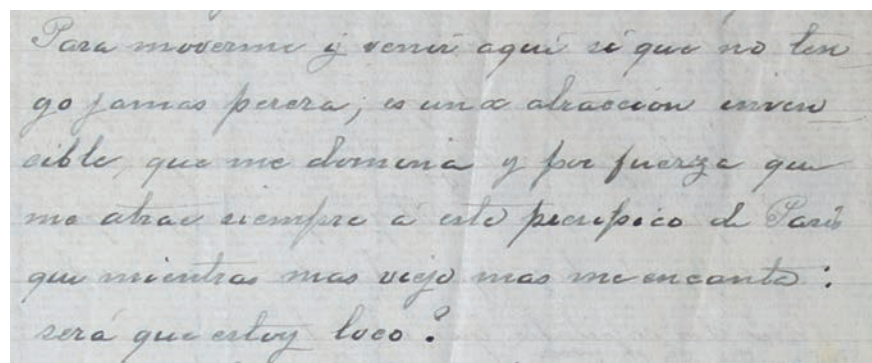 Para moverme y venir aqui si que no ten
go jamas pereza, es una atraccion inven
cible, que me domina y por fuerza que
me atrae siempre á este precipicio de Paris
que mientras mas viejo mas me encanta:
será que estoy loco?